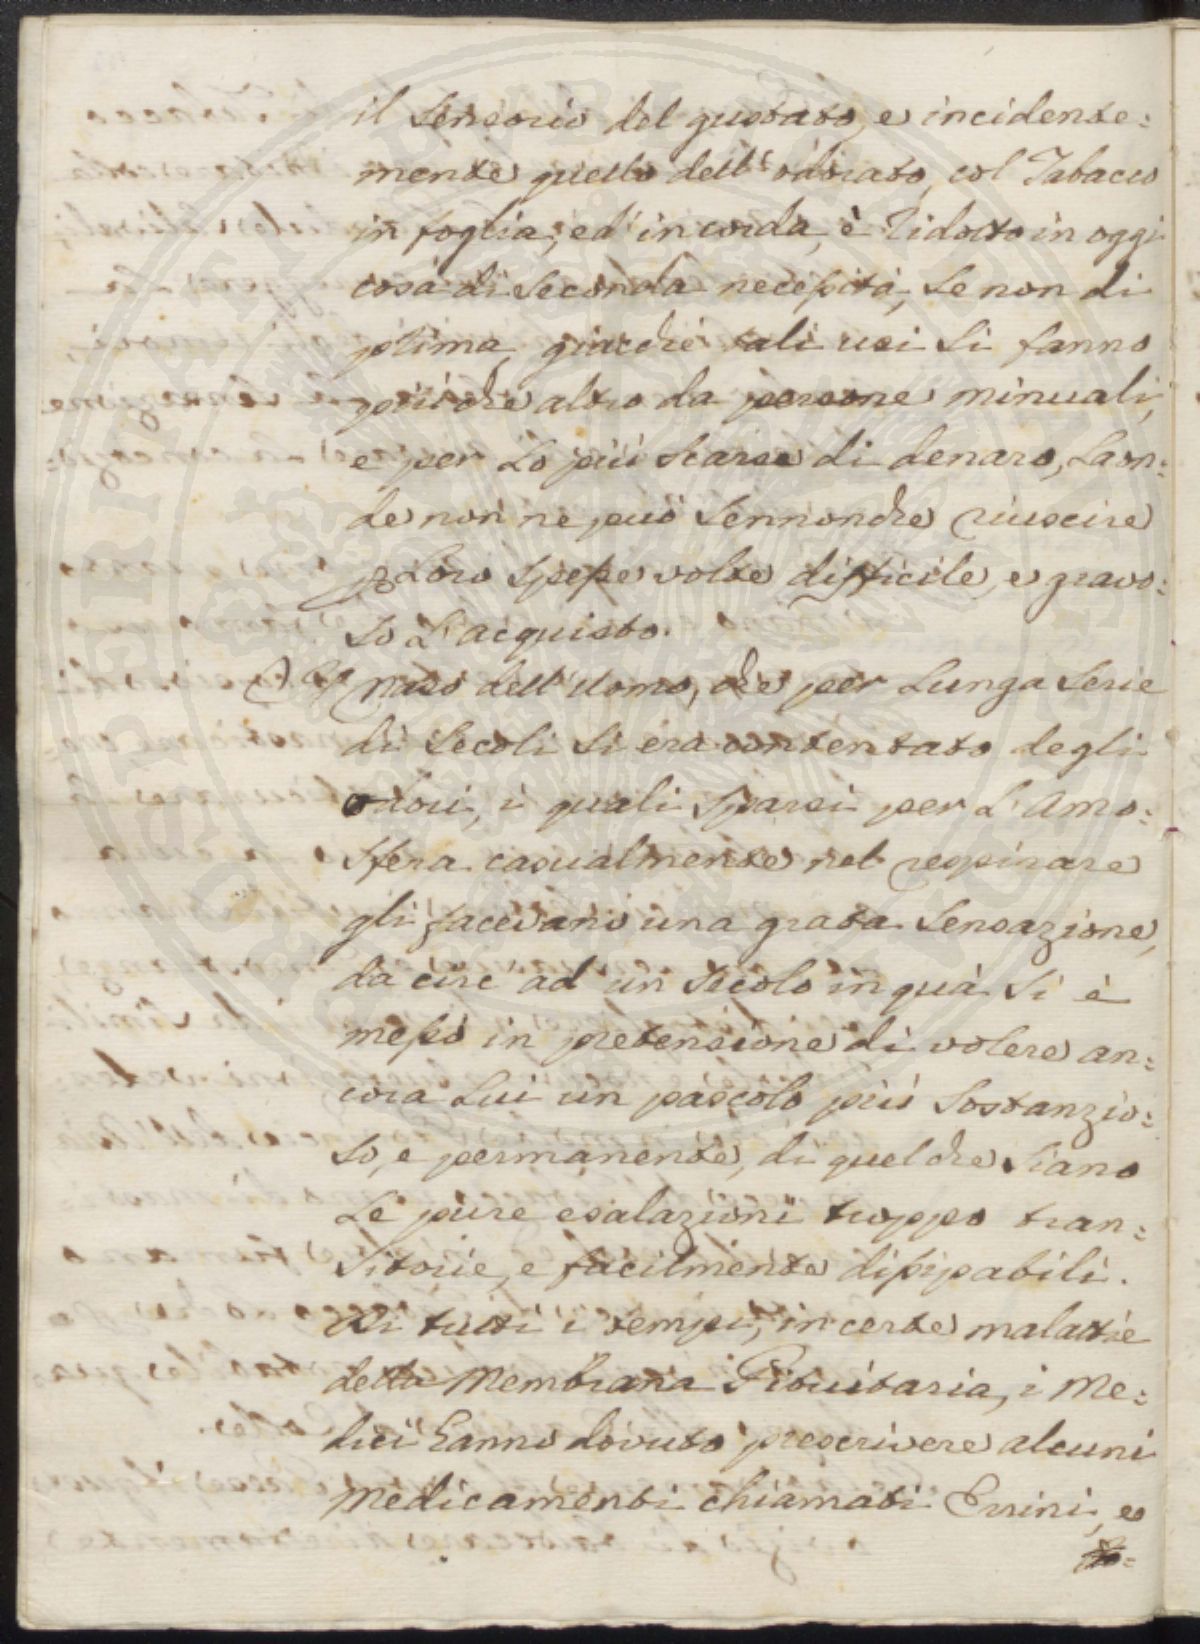 il sensorio del gustato, e incidente:
mente quello dell'odorato, col Tabacco
in foglia, ed' in corda, è ridotto in oggi
cosa di seconda necessità, se non di
prima, giacchè tali usi si fanno
più che altro da persone minuali,
e per lo più scarse di denaro, Laon:
de non ne può sennonche riuscire
p loro spesse volte difficile, e gravo:
so l'acquisto.
Il Naso dell'Uomo, che per lunga serie
di secoli si era contentato degli
odori, i quali sparsi per l'Amo:
sfera casualmente nel respirare
gli facevano una grata sensazione,
da circ' ad un secolo in quà si è
messo in pretensione di volere an:
cora Lui un pascolo più sostanzio:
so, e permanente, di quel che siano
le pure esalazioni troppo tran:
sitorie, e facilmente dissipabili.
In tutti i tempi, in certe malattie
della Membrana Pituitaria, i Me:
dici hanno dovuto prescrivere alcuni
Medicamenti chiamati Errini, e